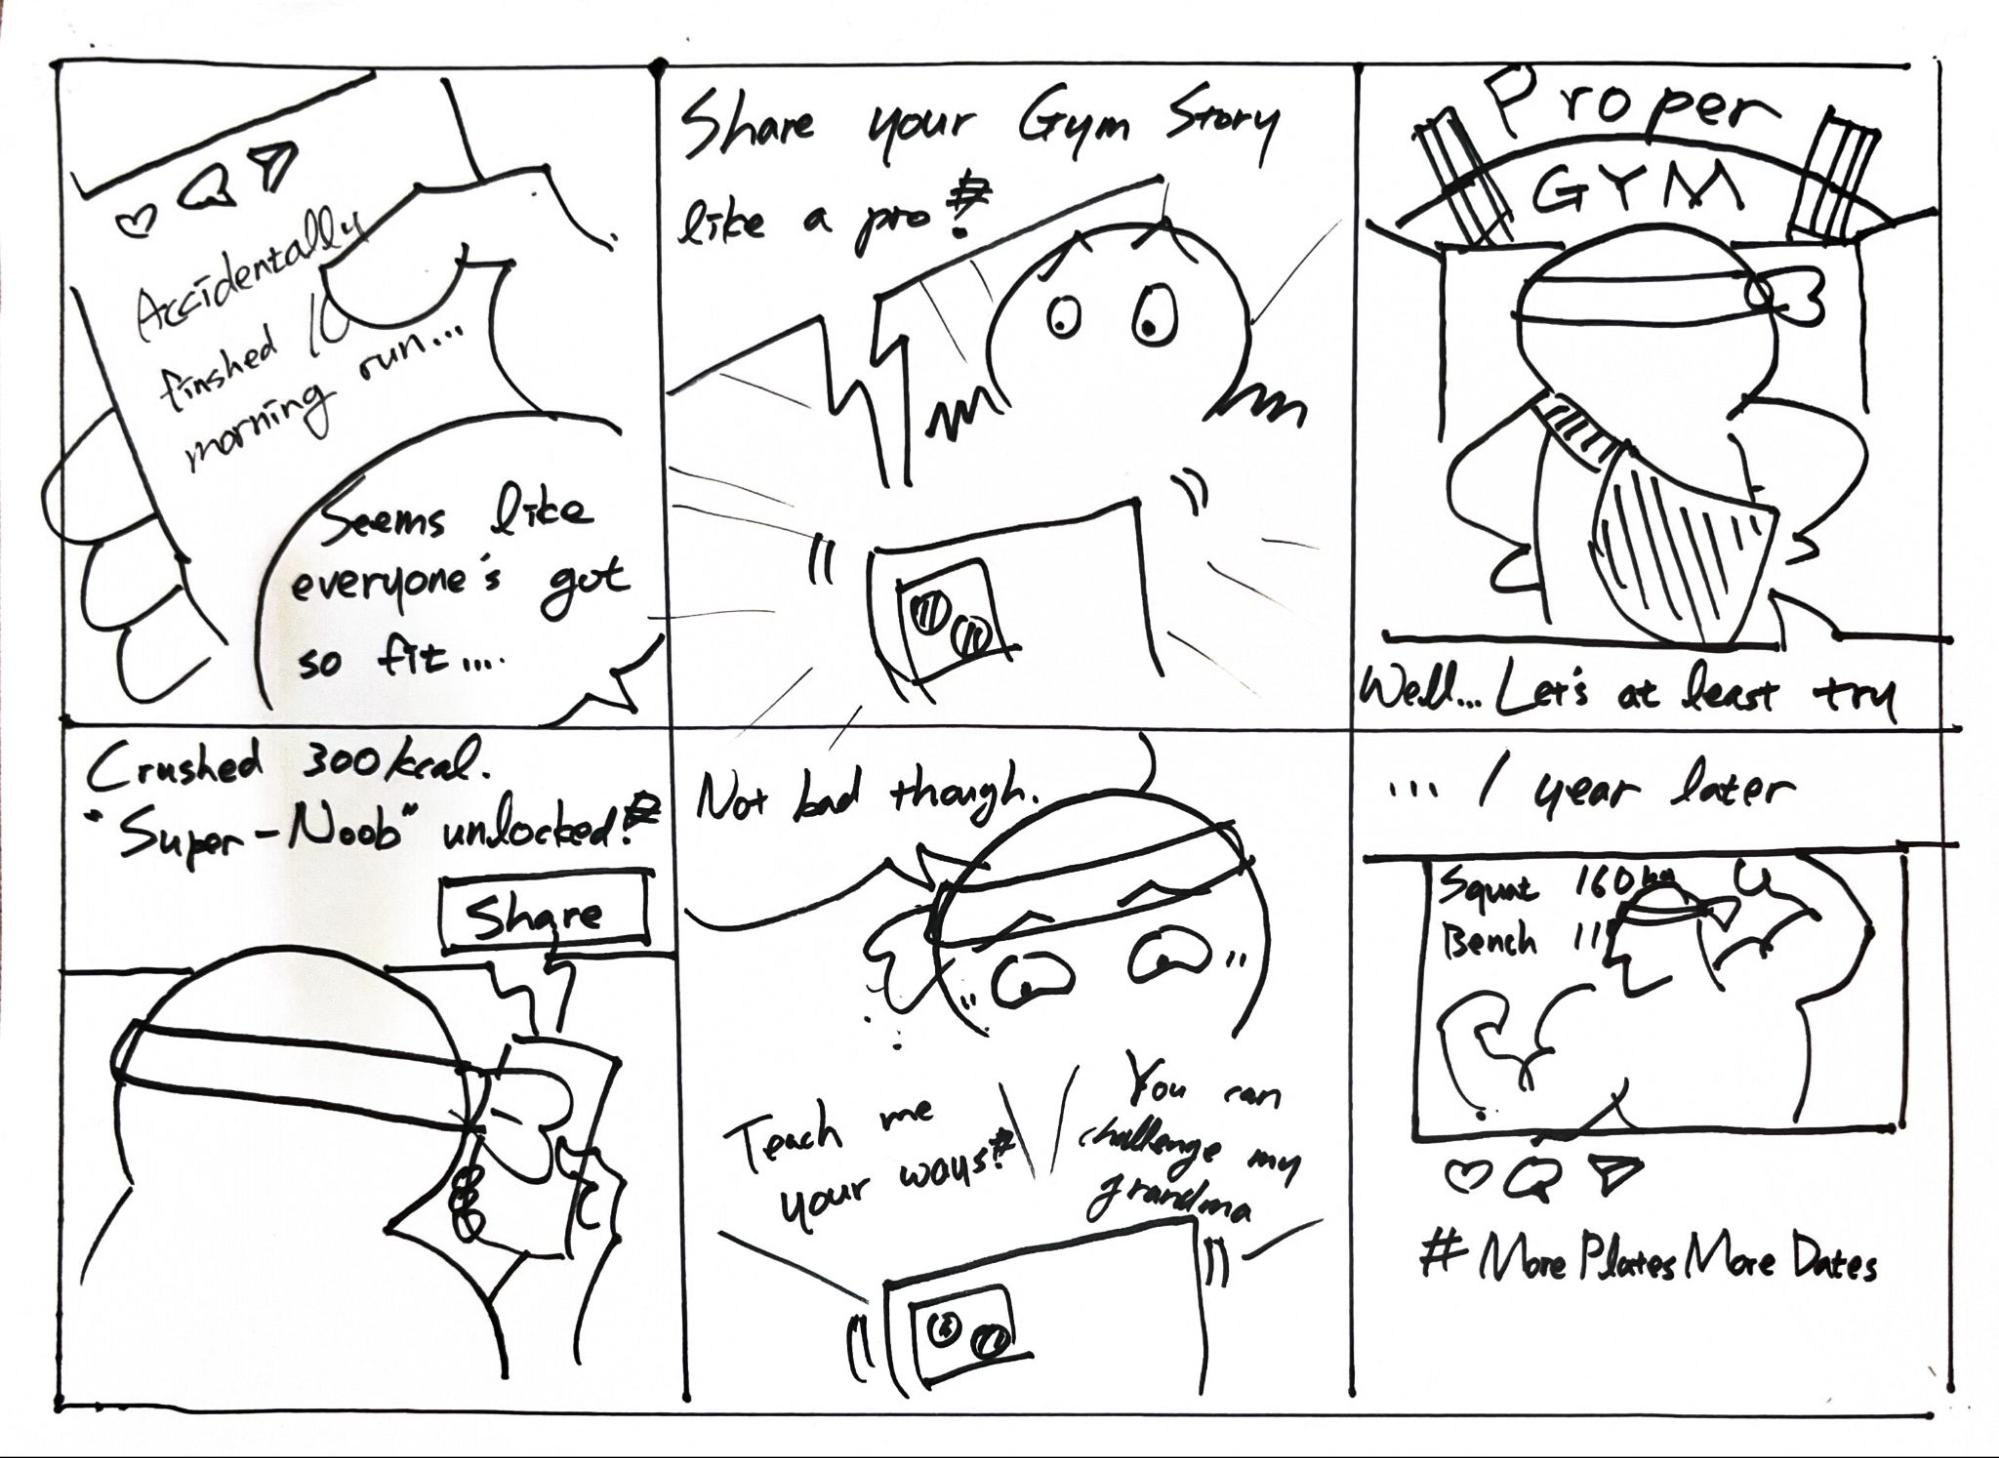 Accidentally
finshed 10
morning run...
Seems like
everyone's got
so fit....
Share your Gym Story
like a pro!
Proper
GYM
Well... Let's at least try
Crushed 300kcal.
"Super-Noob" unlocked!
Share
Not bad though.
Teach me
your ways!
You can
challenge my
grandma
... 1 year later
Squat 160
Bench 11
#MorePlatesMoreDates